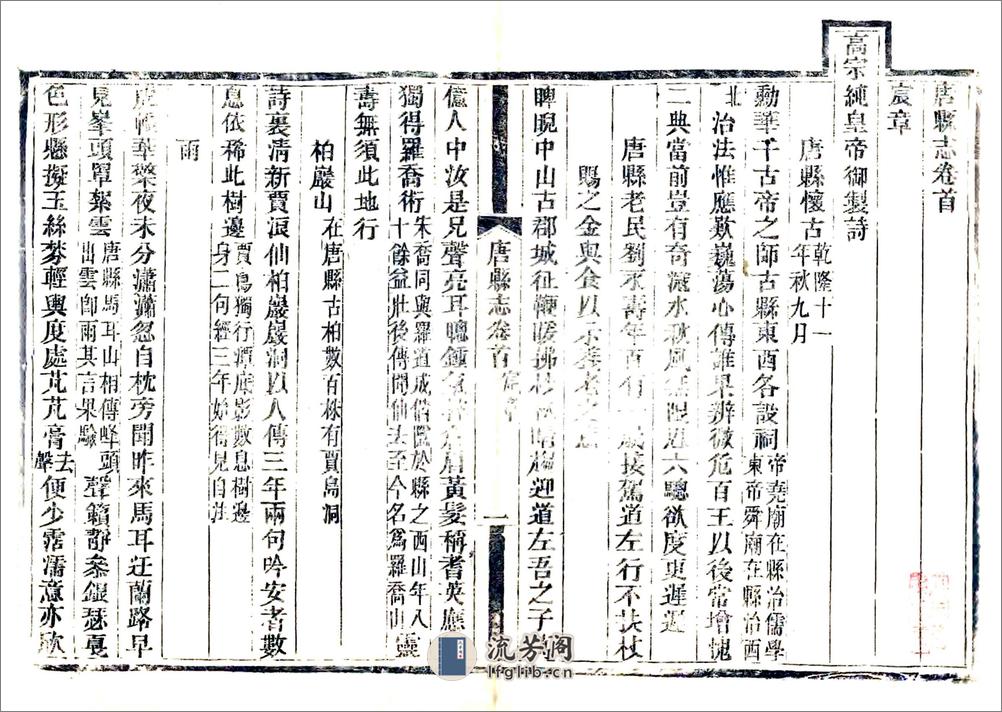 唐縣志卷首
宸章
高宗純皇帝御製詩
唐縣懷古乾隆十一年秋九月
勳華千古帝之師古縣東西各設祠帝堯廟在縣治儒學東帝舜廟在縣治西
北治法惟應歎巍蕩心傳誰果辨微危百王以後當增愧
二典當前豈有奇滱水秋風無限思六驄欲度更遲遲
唐縣老民劉永壽年百有 歲接駕道左行不扶杖
賜之金與食以示養老之
睥睨中山古郡城征鞭暖拂 晴趨迎道左吾之子
億人中汝是兄聲亮耳聰鍾 眉黃髮稱耆英應
獨得羅喬術朱喬同與羅道成偕隱於縣之西山年八十餘益壯後傳聞仙去至今名為羅喬山靈
壽無須此地行
柏巖山在唐縣古柏數百株有賈島洞
詩裏清新賈浪仙柏巖巖洞以人傳三年兩句吟安者數
息依稀此樹邊賈島獨行潭底影數息樹邊身二句經三年始得見自註
雨
華藥夜未分瀟瀟忽自枕旁聞昨來馬耳迂蘭路早
見峯頭罩絮雲唐縣馬耳山相傳峰頭出雲卽雨其言果驗聲籟靜參銀瑟戛
色形懸擬玉絲棼輕輿度處芃芃膏去聲便少霑濡意亦歡
唐縣志卷首
宸章
一
流芳閣
lfglib.cn